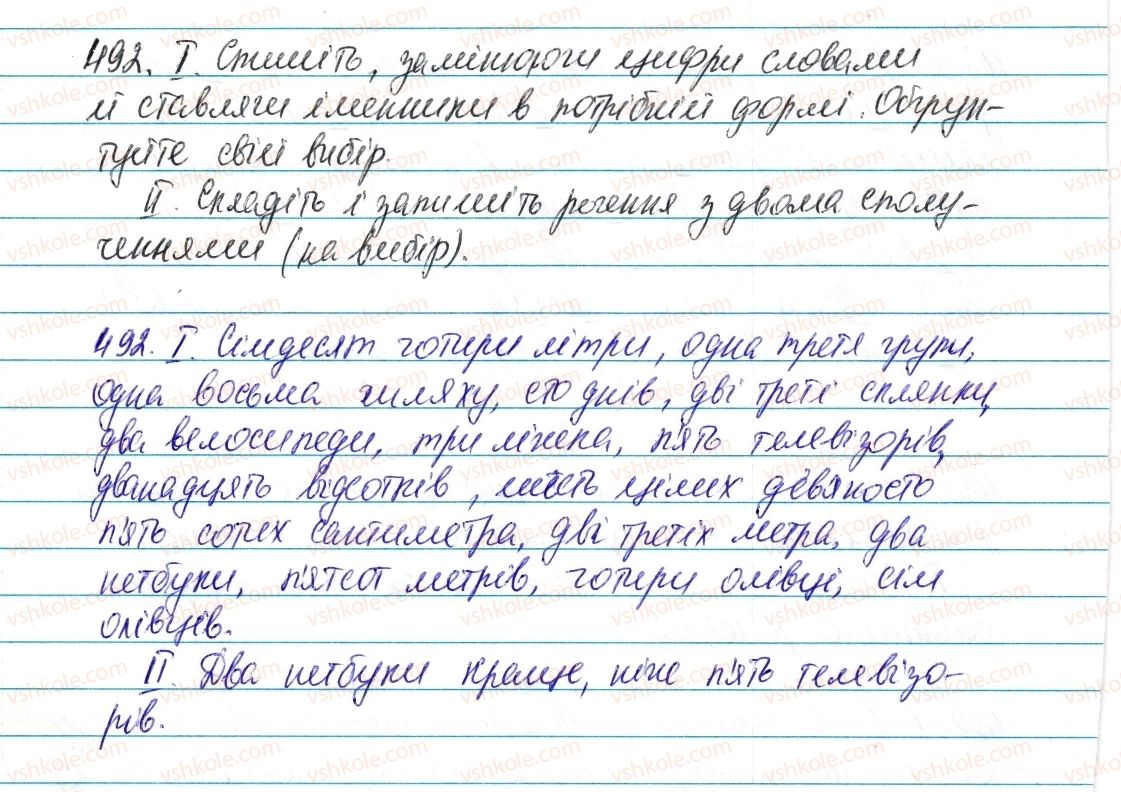 492. I. Спишіть, замінюючи цифри словами
й ставлячи іменники в потрібній формі. Обґрун-
туйте свій вибір.
II. Складіть і запишіть речення з двома сполу-
ченнями (на вибір).
492. I. Сімдесят чотири літри, одна третя групи,
одна восьма шляху, сто днів, дві треті склянки,
два велосипеди, три ліжка, п'ять телевізорів,
дванадцять відсотків, шість цілих дев'яносто
п'ять сотих сантиметра, дві третіх метра, два
нетбуки, п'ятсот метрів, чотири олівці, сім
олівців.
II. Два нетбуки краще, ніж п'ять телевізо-
рів.